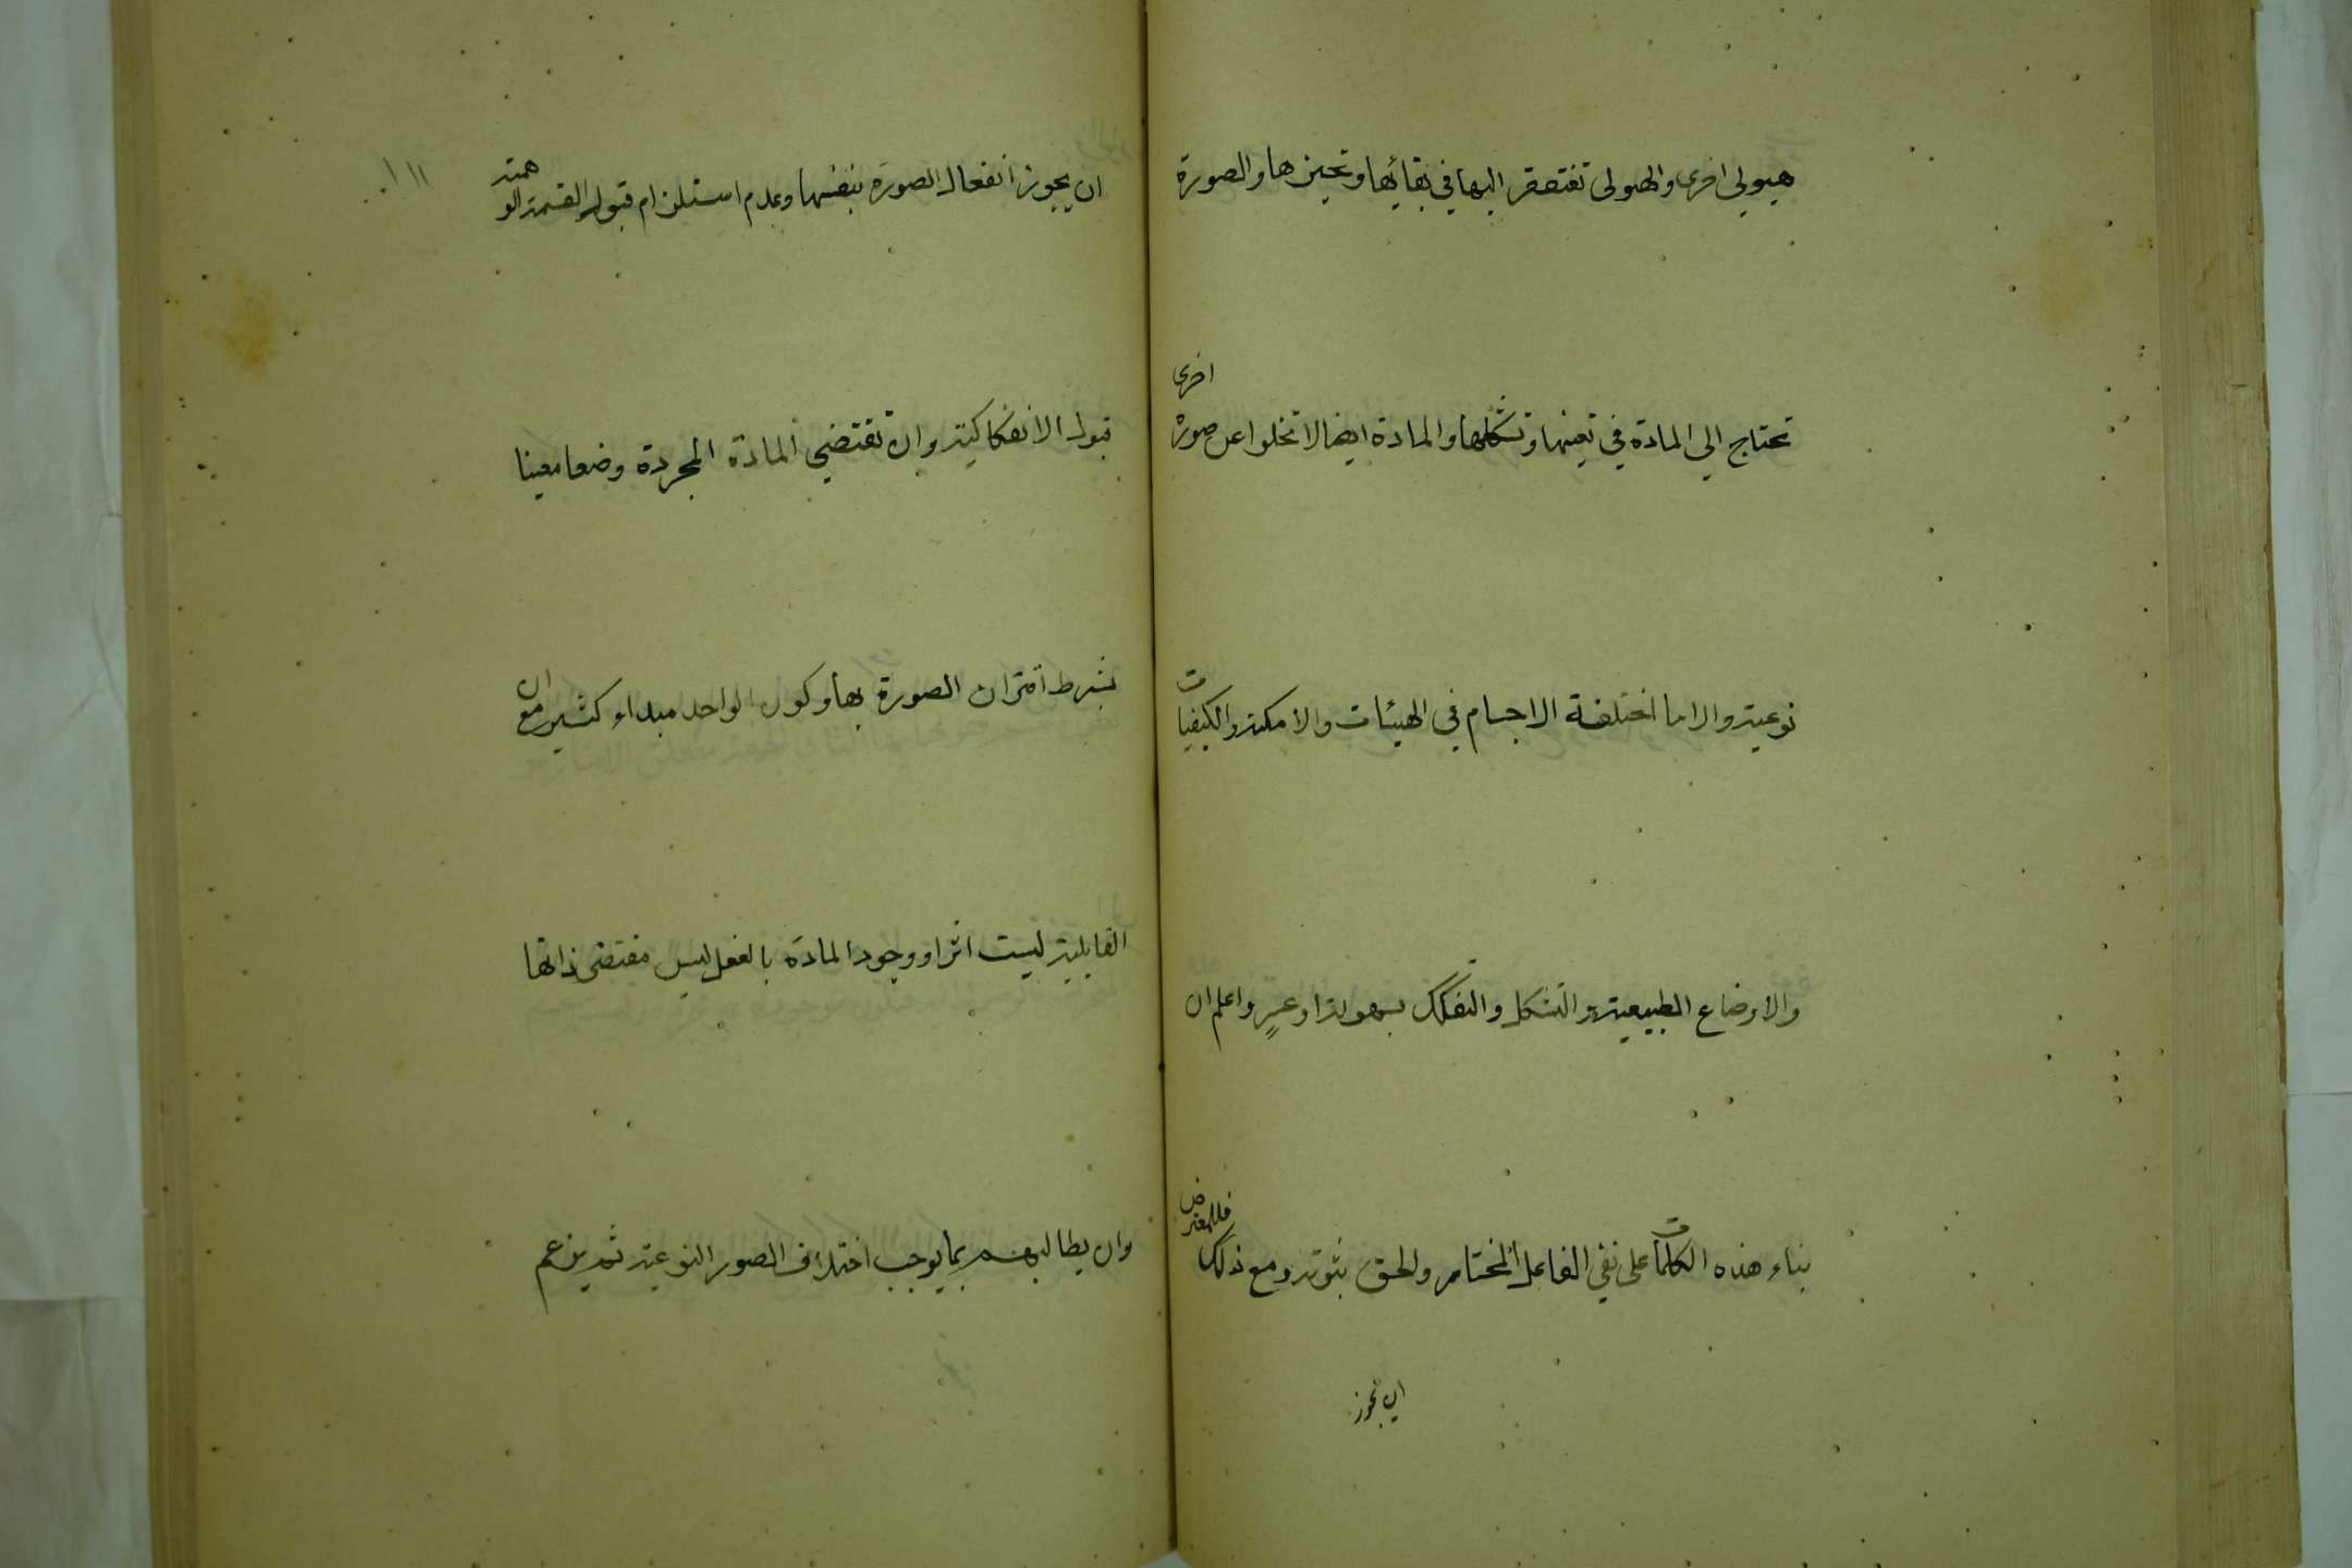 هيولي اخرى والهيولى تفتقر اليها في بقائها وتحيزها والصورة
تحتاج الي المادة في تعينها وتشكلها والمادة ايضا لا تخلوا عن صورة اخرى
نوعية والا ما اختلفة الاجسام في الهيئات والامكنة والكيفيات
والاوضاع الطبيعية والتشكل والتفكك بسهولة او عسر واعلم ان
بناء هذه الكلمات على نفي الفاعل المختار والحق ثبوته ومع ذلك فللمعترض
ان يجوز
١١١
ان يجوز انفعال الصورة بنفسها وعدم استلزام قبول القسمة الوهمية
قبول الانفكاكية وان تقتضي المادة المجردة وضعا معينا
بشرط اقتران الصورة بها وكون الواحد مبداء كثير مع ان
القابلية ليست اثرا ووجود المادة بالفعل ليس مقتضى ذاتها
وان يطالبهم بما يوجب اختلاف الصور النوعية ثم يزعم